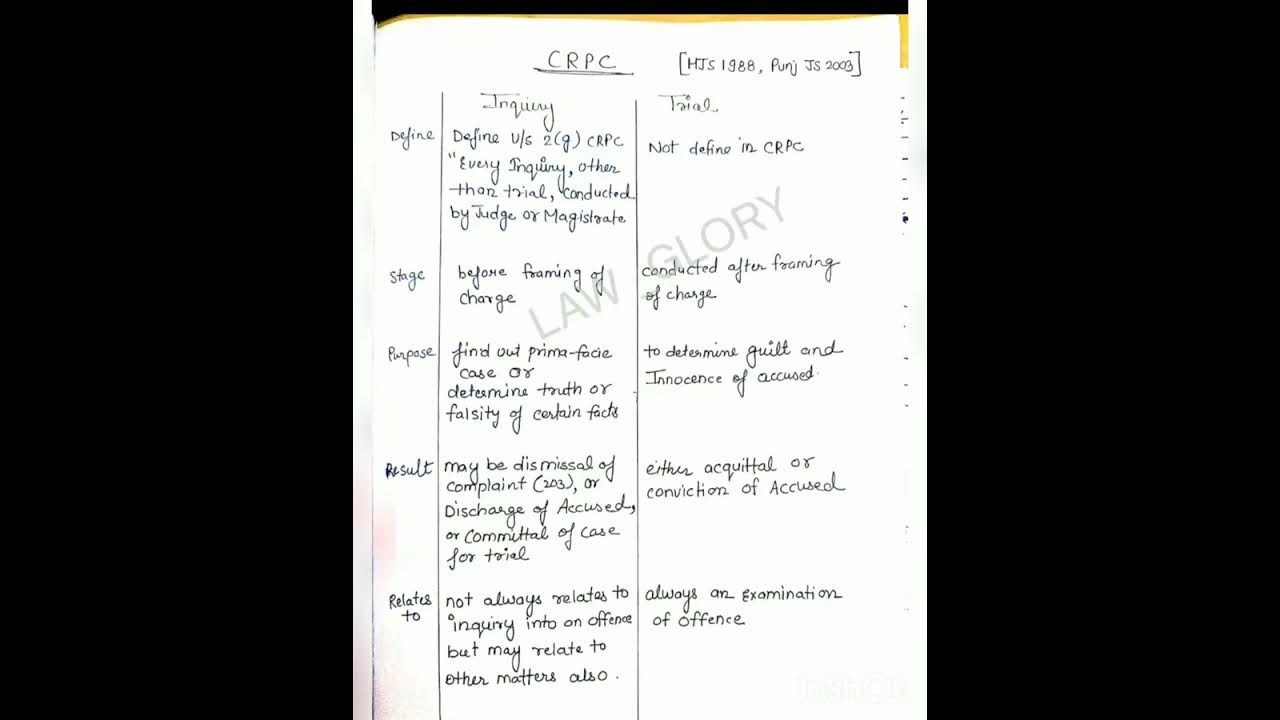 CRPC [HJS 1988, Punj JS 2003]
Inquiry Trial
Define Define U/s 2(g) CRPC Not define in CRPC
"Every Inquiry, other
than trial, conducted
by Judge or Magistrate
Stage before framing of conducted after framing
charge of charge
Purpose find out prima-facie to determine guilt and
case or Innocence of accused.
determine truth or
falsity of certain facts
Result may be dismissal of either acquittal or
complaint (203), or conviction of Accused
Discharge of Accused,
or Committal of case
for trial
Relates not always relates to always an Examination
to inquiry into an offence of offence
but may relate to
other matters also.
LAW GLORY
InShOt